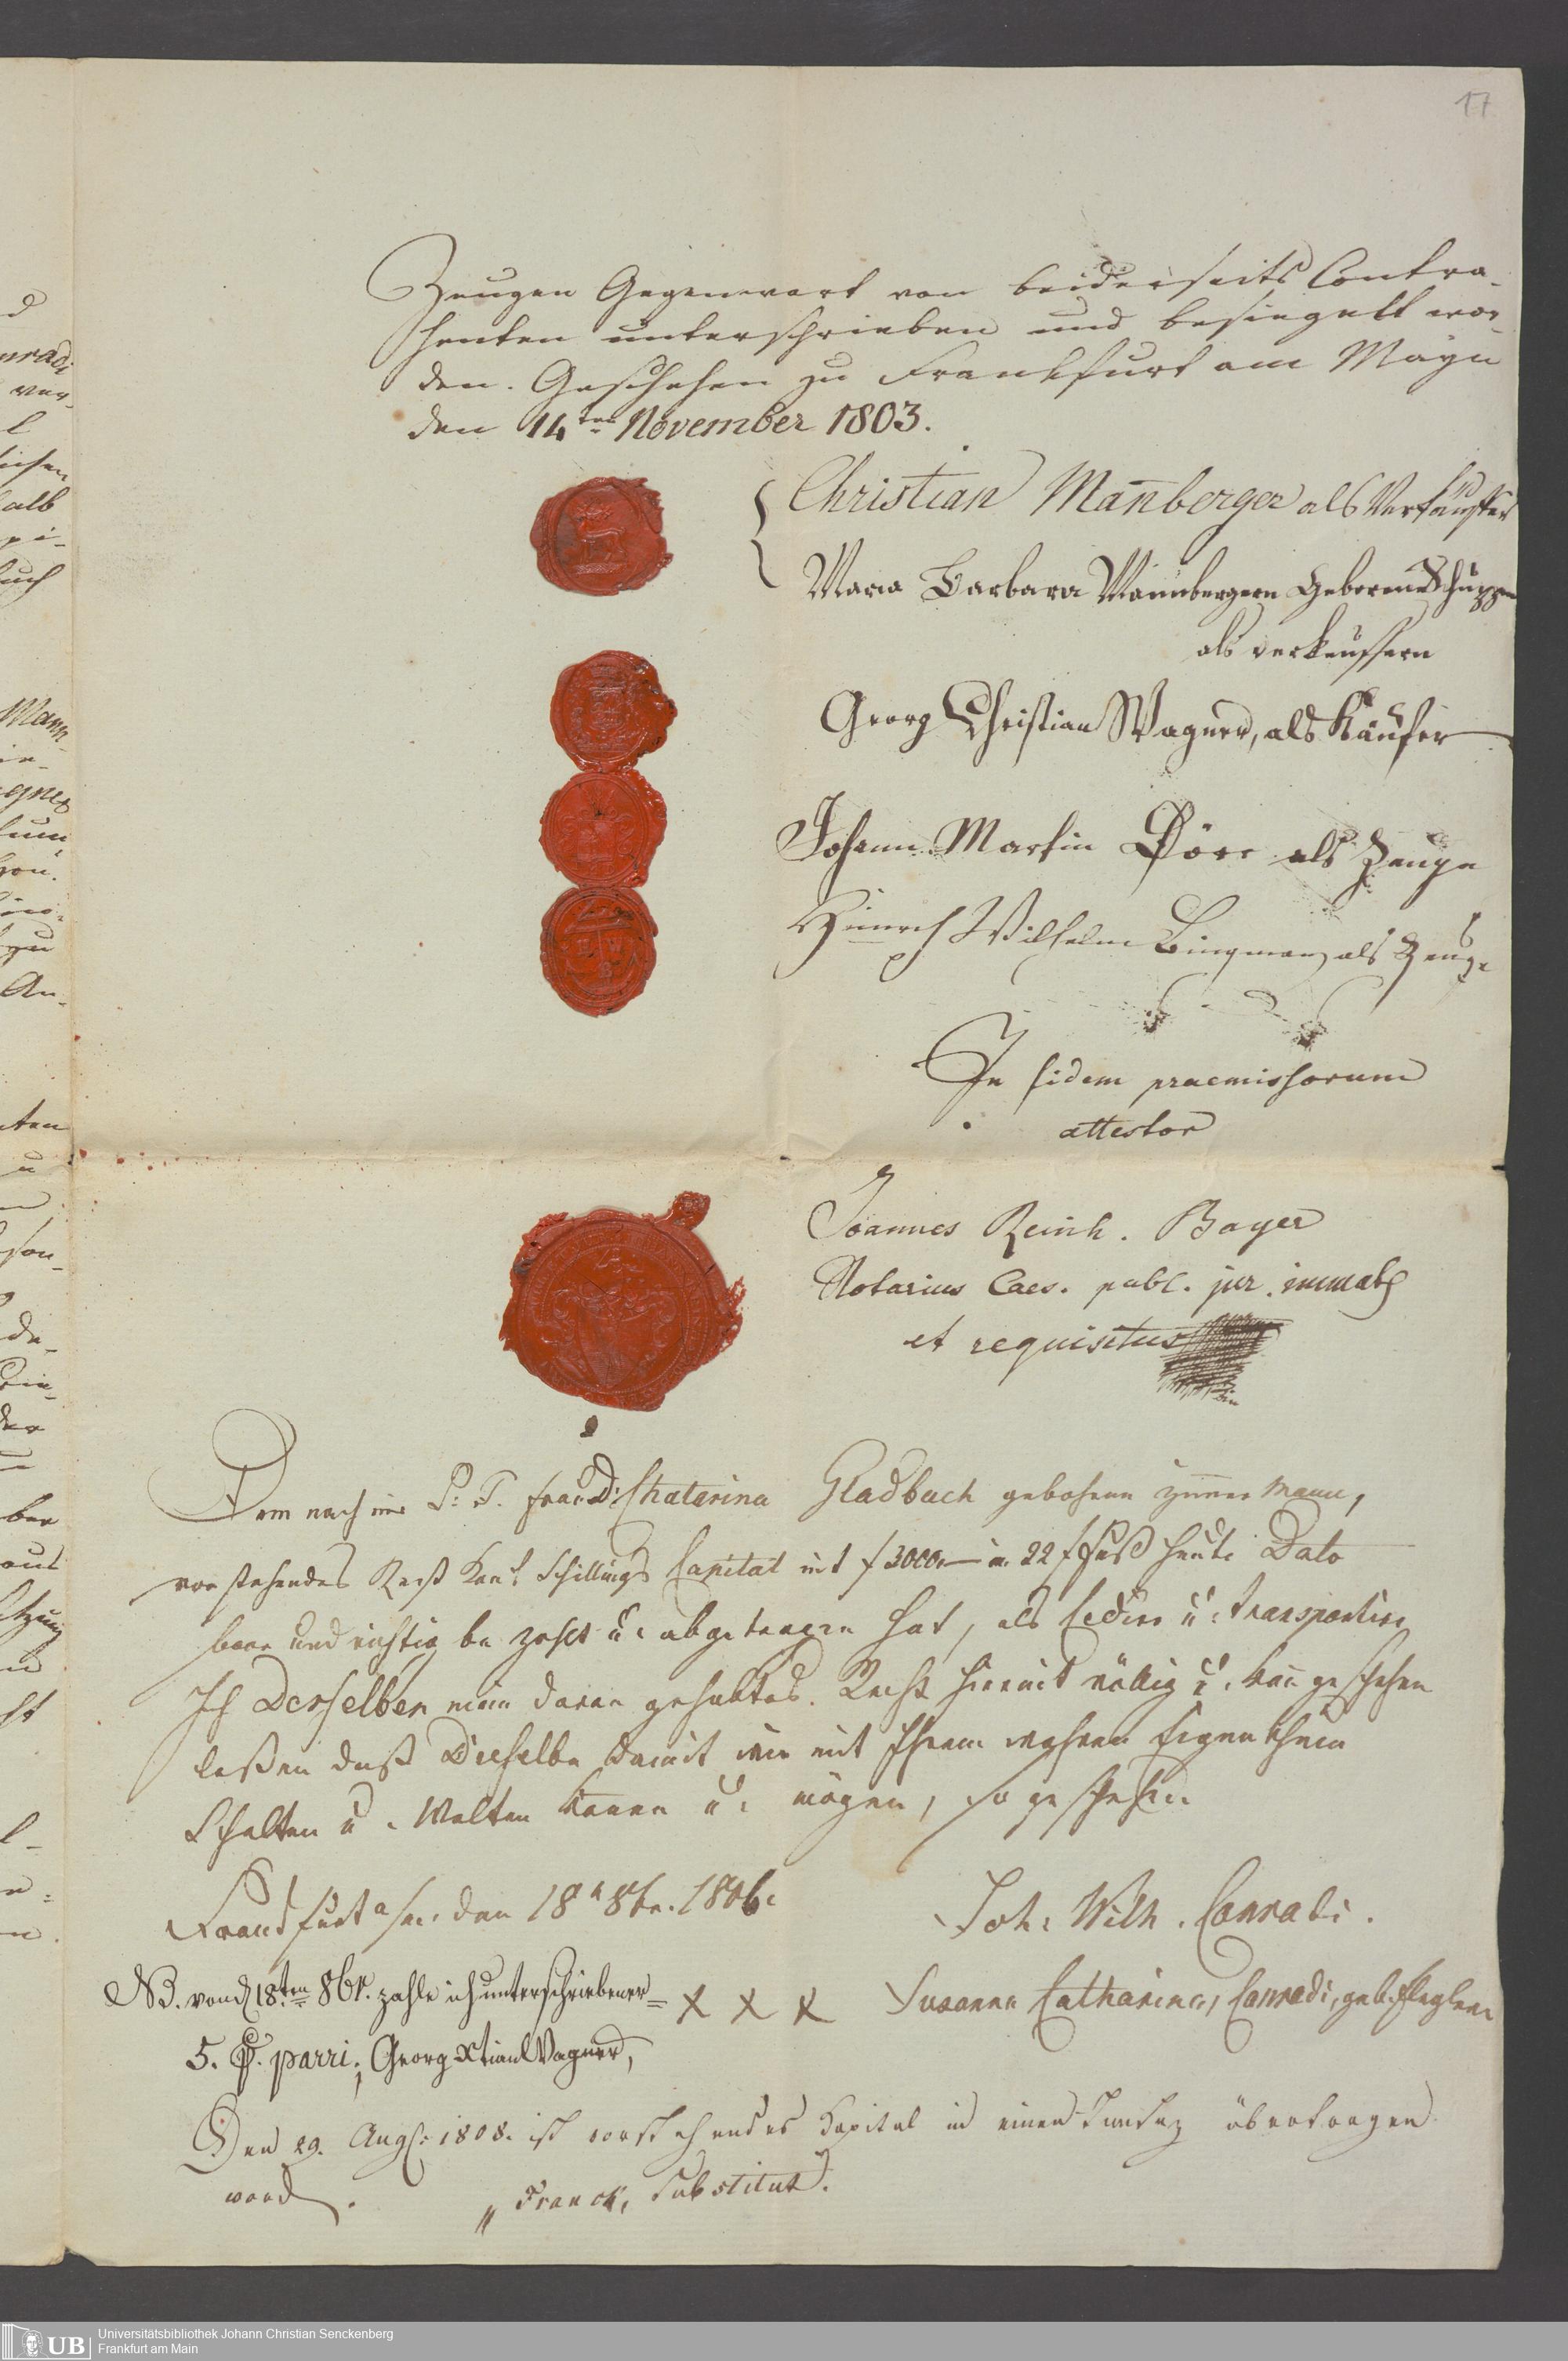 17
Zeugen Gegenwart von beiderseits Contra-
henten unterschrieben und besiegelt wor-
den. Geschehen zu Frankfurt am Mayn
den 14ten November 1803.
Christian Mannberger als Verkäuffer
Maria Barbara Mannbergern Geborene Schupp
als verkeuffern
Georg Christian Wagner, als Käufer
Johann Martin Dörr als Zeuge
Hinrich Wilhelm Bingmann als Zeuge
In fidem praemissorum
attestor
Joannes Reinh. Bayer
Notarius Caes. publ. jur. immat
et requisitus
Dem nach mir P: T. frau D: Chatarina Gladbach gebohrne Zimmermann,
vorstehendes Rest Kauf Schillings Capital mit f 3000,— in 22 f fuß heute Dato
baar und richtig bezahlt u: abgetragen hat, als Cedire u: transportire
Ich Derselben mein daran gehabtes Recht hiermit völlig u. kan geschehen
laßen daß Dieselbe damit wie mit Ihrem wahren Eigenthum
Schalten u. Walten könen u: mögen, so geschehen
Franckfurt a/m. den 18n 8br. 1806.
Joh: Wilh. Conradi.
NB. von d 18ten 8br. zahle ich unterschriebener
5. P. parri; Georg Xtian Wagner,
X X X Susanna Catharina, Conradi, geb.
Den 29. Augs: 1808. ist vorstehendes Kapital in einen Insaz übertragen
word.
" Franck, Substitut.
UB Universitätsbibliothek Johann Christian Senckenberg
Frankfurt am Main